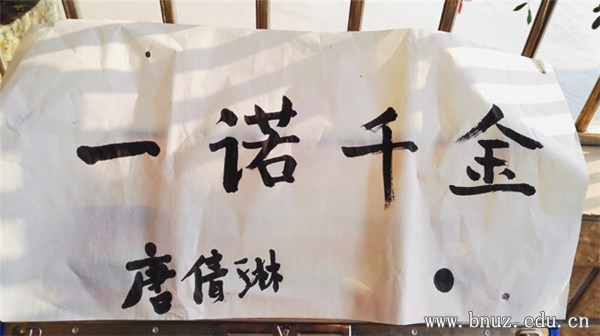 一诺千金
唐倩琳
www.bnuz.edu.cn